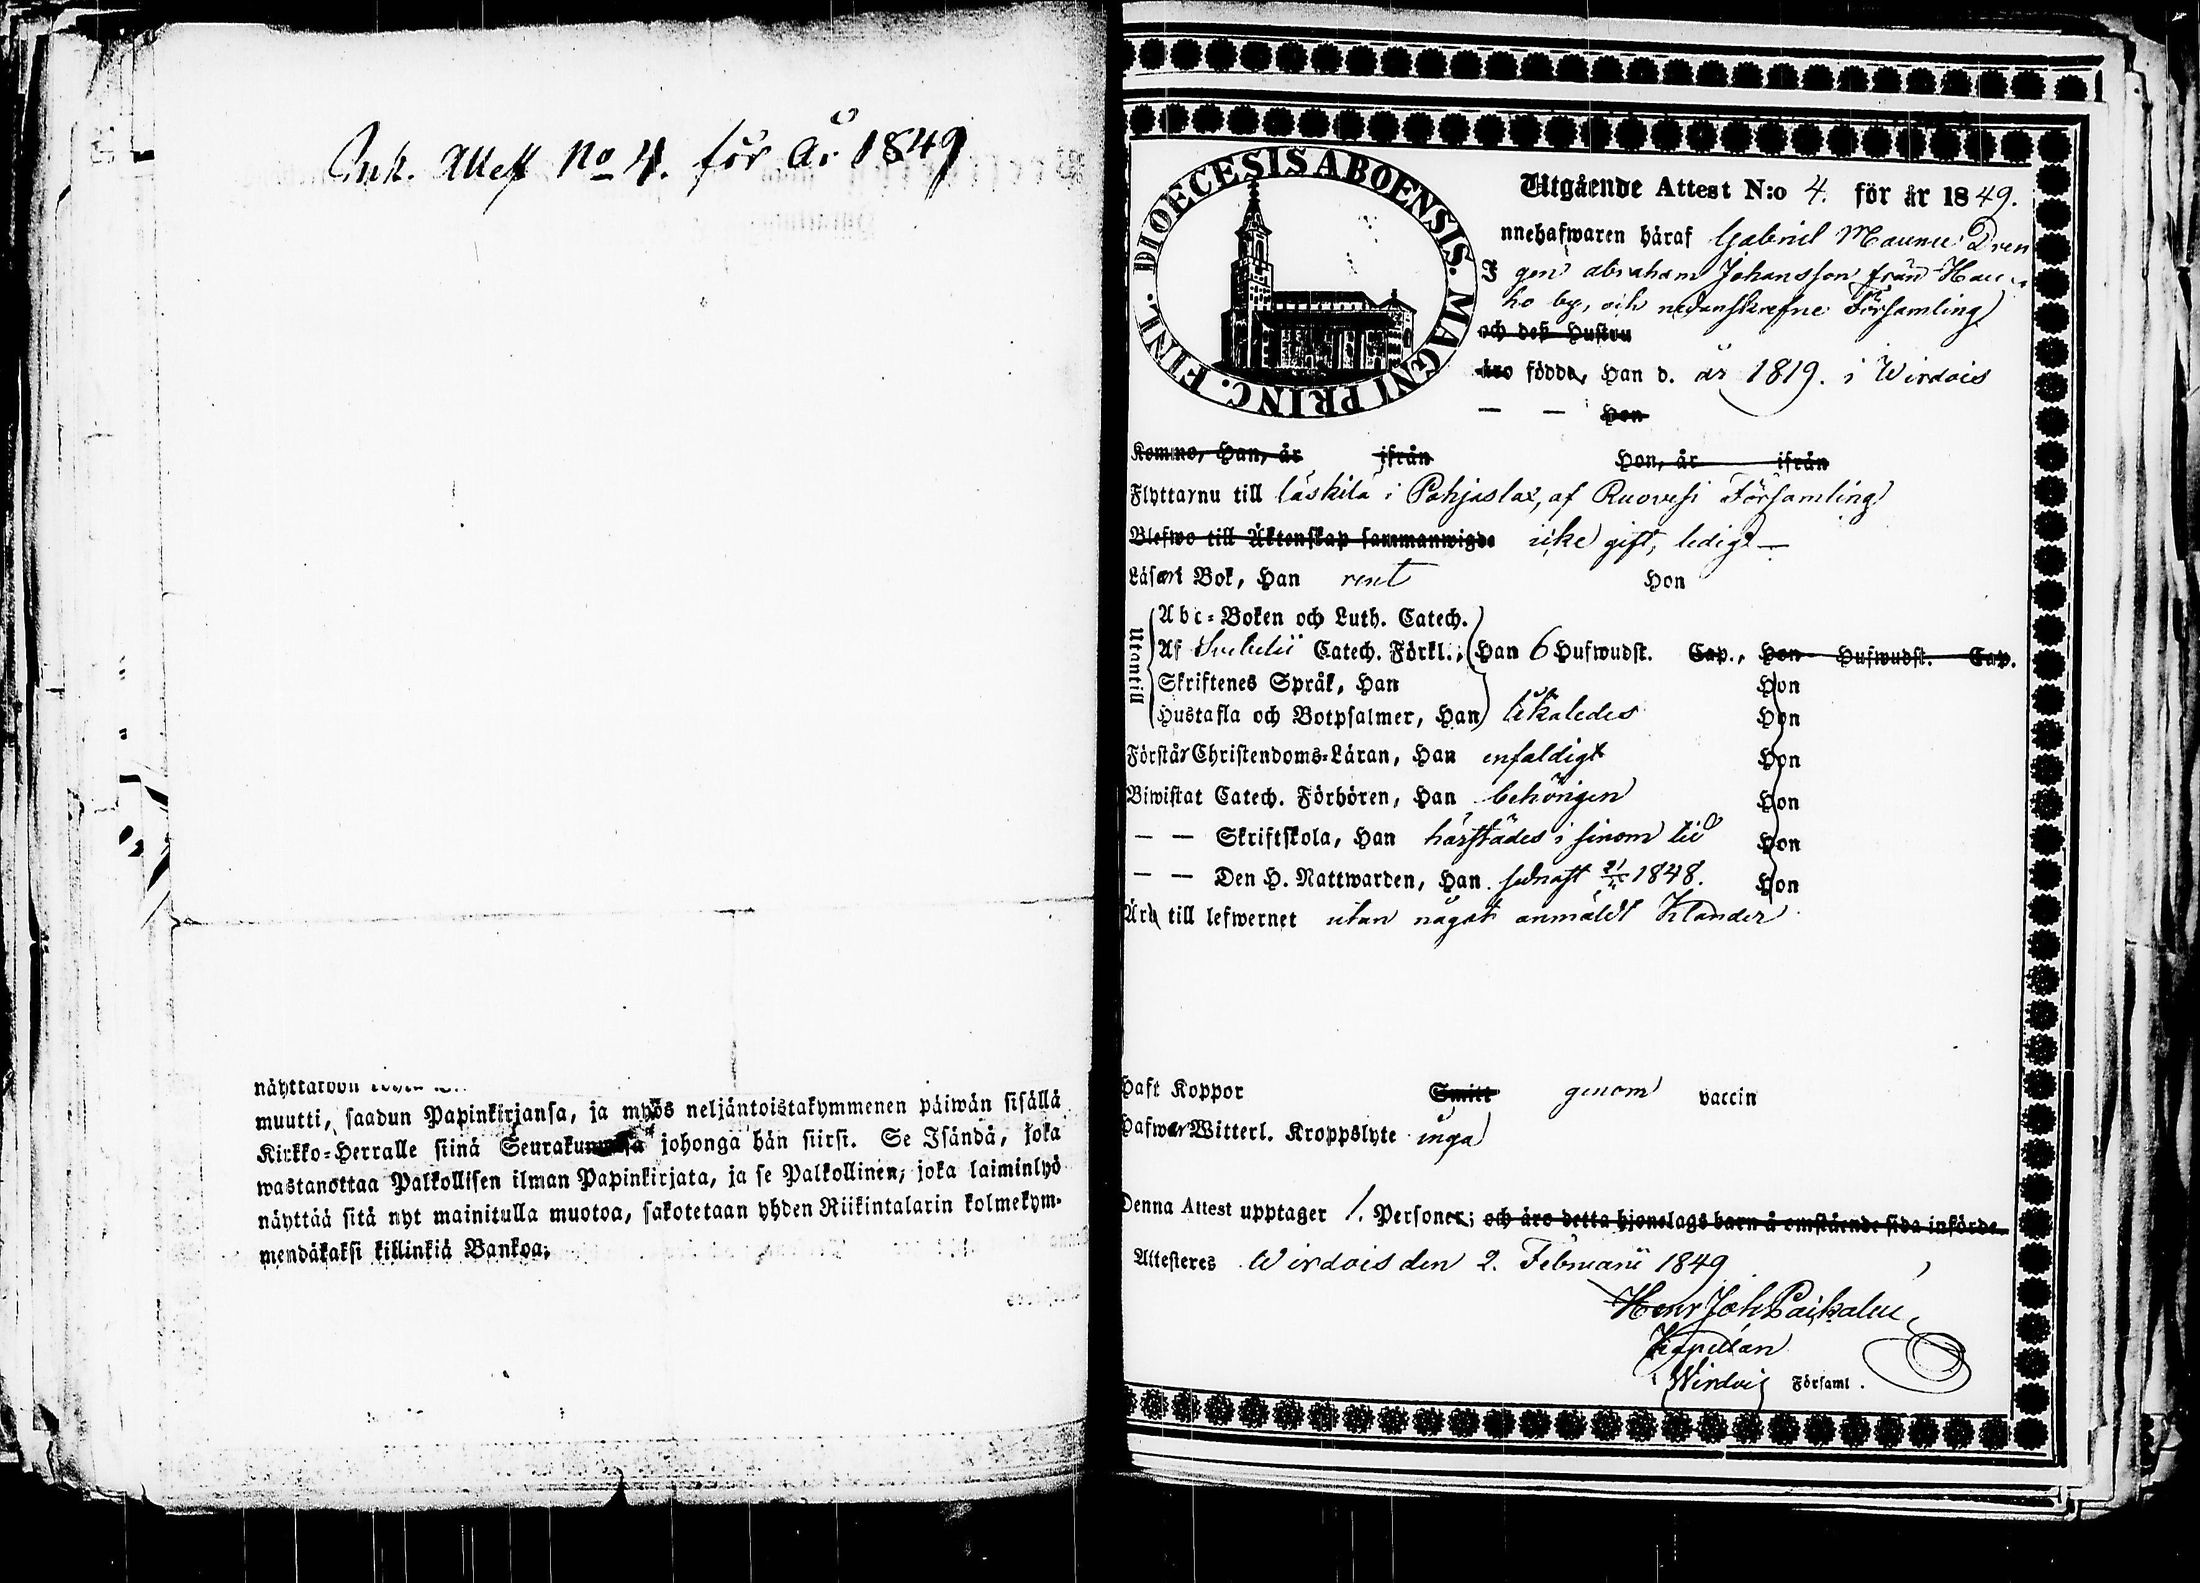 Ink. Attest No 4. för år 1849
muutti, saadun Papinkirjansa, ja myös neljäntoistakymmenen päiwän sisällä
Kirkko-Herralle siinä Seurakunnassa johonga hän siirsi. Se Isändä, joka
wastanottaa Palkollisen ilman Papinkirjata, ja se Palkollinen, joka laiminlyö
näyttää sitä nyt mainitulla muotoa, sakotetaan yhden Riikintalarin kolmekym-
mendäkaksi killinkiä Bankoa.
DIOECESIS ABOENSIS. MAGNI PRINC. FINL.
Utgående Attest N:o 4. för år 1849.
Innehafwaren häraf Gabriel Maunu Dren
gen Abraham Johansson från Hau
ho by, och nedanskrefne Församling
och deß Hustru
äro födde, Han d. år 1819. i Wirdois
— — Hon
Komne, Han, år ifrån Hon, år ifrån
Flyttarnu till Läskilä i Pohjaslax, af Ruovesi Församling
Blefwo till Äktenskap sammanwigde icke gift, ledig —
Läser i Bok, Han rent Hon
Utantill
Abc-Boken och Luth. Catech.
Af Svebelii Catech. Förkl., Han 6 Hufwudst. Cap., Hon Hufwudst. Cap.
Skriftenes Språk, Han Hon
Hustafla och Botpsalmer, Han likaledes Hon
Förstår Christendoms-Läran, Han enfaldigt Hon
Biwistat Catech. Förhören, Han behörigen Hon
— — Skriftskola, Han härstädes i sinom tid Hon
— — Den H. Nattwarden, Han sednast 1848. Hon
Äro till lefwernet utan något anmäldt klander
Haft Koppor Smitt genom vaccin
Hafwer Witterl. Kroppslyte inga
Denna Attest upptager 1. Personer; och äro detta hjonelags barn å omstående sida införde.
Attesteres Wirdois den 2. Februarii 1849
Henr Joh Paikalen
Kapellan
i Wirdois Församl.